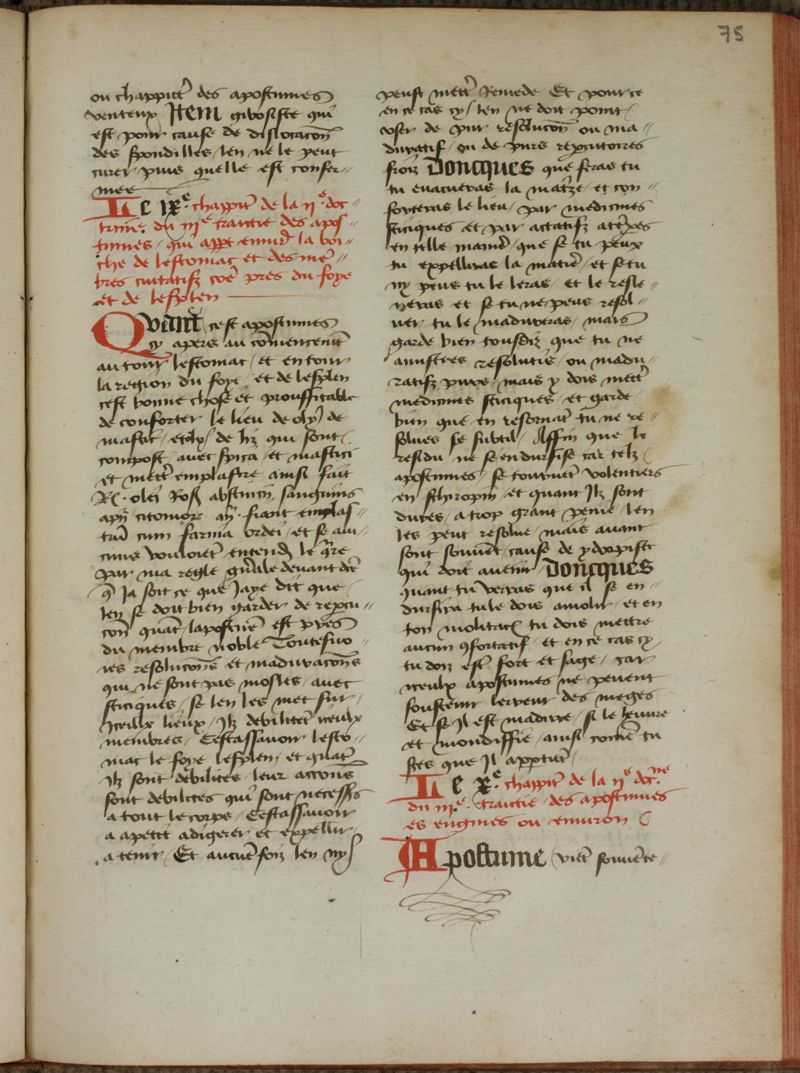 75
ou chappitre des apostumes
venteux Item gibosiste qui
est pour cause de dislocacon
des spondilles / len ne le peut
curer / puis quelle est confer //
mee
Le ixe. chappitre de la iie doc //
trine. du iiie traictie des apos //
tumes / qui appt enuiron la bou //
che de lestomac et des mem //
bres nutritifz comme pres du foye
et de lesplen
Quant cest apostumes
cy apers au commencement
autour lestomac / et entour
la region du foye / et de lesplen
cest bonne chose et prouffitable
de conforter le lieu de olyum de
mastic / de liz qui sont
compost auec spica / et mastici
et mettre emplastre ainsi fait
Rx. olei Ros absincii sanguinis
an. fiant emplas //
trum cum farina ordei / et se au //
cuns vouloient entendre le querre
par ma regle generale deuant dicte
que ja soit ce que jaye dit que
len se doit bien garder de repcu //
cion quant lapostume est pres
du membre noble Toutesuo //
ies resolucions et maduracions
qui ne sont pas mesles / auec
sticiques / se len les met sur
iceulx lieux / ilz debilitent iceulx
membres / Cestassauoir lesto //
mac le foye lesplen / et quant
ilz sont debilites / leur accons
sont debilites qui sont necesseres
a tout le corps / Cestassauoir
a apetit a digerer et expellir
a tenir / Et aucunes foiz len ny
peust mettre Remede Et pour ce
en ce cas cy / len ne doit point /
vser de pur resolucon ou ma //
duratif / ou de purs repcutoires
froiz Doncques que feras tu
tu euacueras la matere / et con //
forteras le lieu / par medicines
sticiques et par actatifz
en telle maniere / que se tu peux
tu expelliras la matiere / et se tu
ny peus tu le leras / et le resle //
ueras et se tu ne peus resol //
uer tu le madureras / mais
garde bien tousdiz que tu ne
amistres resolutis ou madu //
ratifz purs / mais y dois mettre
medicines sticiques / et garde
bien que en resoruat tu ne re //
solues se subtil / Affin que le
residu ne se endurisse car telz
apostumes / se tournent volentiers
en schiropin / et quant ilz sont
dures / a trop grant peine / len
les peut resolue / mais auant
sont souuent cause de ydropisie
qui doit auenir Doncques
quant tu verras que il se en //
dursira tu le dois amolir / et en
ton molitatif tu dois mettre
aucun confortatif / et en ce cas cy
tu doiz estre fort et sage / car
iceulx apostumes ne peuent
soustenir lerreur des meges
Et se il est madure / si le heuure
et mondiffie / ainsi comme tu
sces que il apptient
Le xe. chappitre de la iie docne
du iiie. traictie des apostumes
es engines ou enuiron
Apostume / vient souuente //